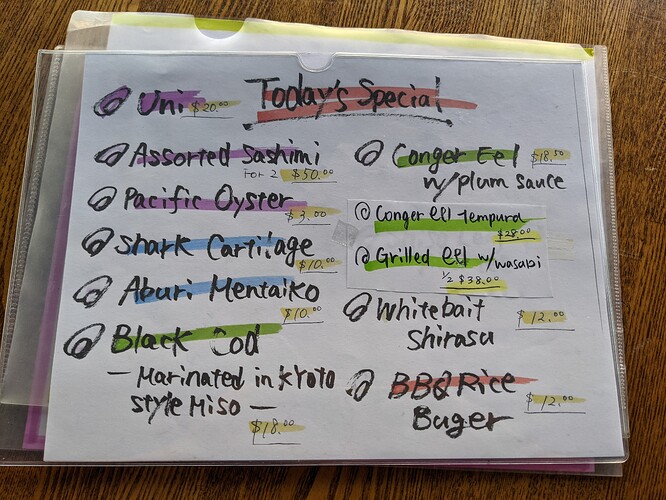 Today's Special
Uni $20.00
Assorted Sashimi
For 2 $50.00
Pacific Oyster
$3.00
Shark Cartilage
$10.00
Aburi Mentaiko
$10.00
Black Cod
— Marinated in Kyoto
style Miso —
$18.00
Conger Eel $18.50
w/plum sauce
Conger eel tempura
$28.00
Grilled eel w/wasabi
1/2 $38.00
Whitebait $12.00
Shirasu
BBQ Rice
Buger $12.00